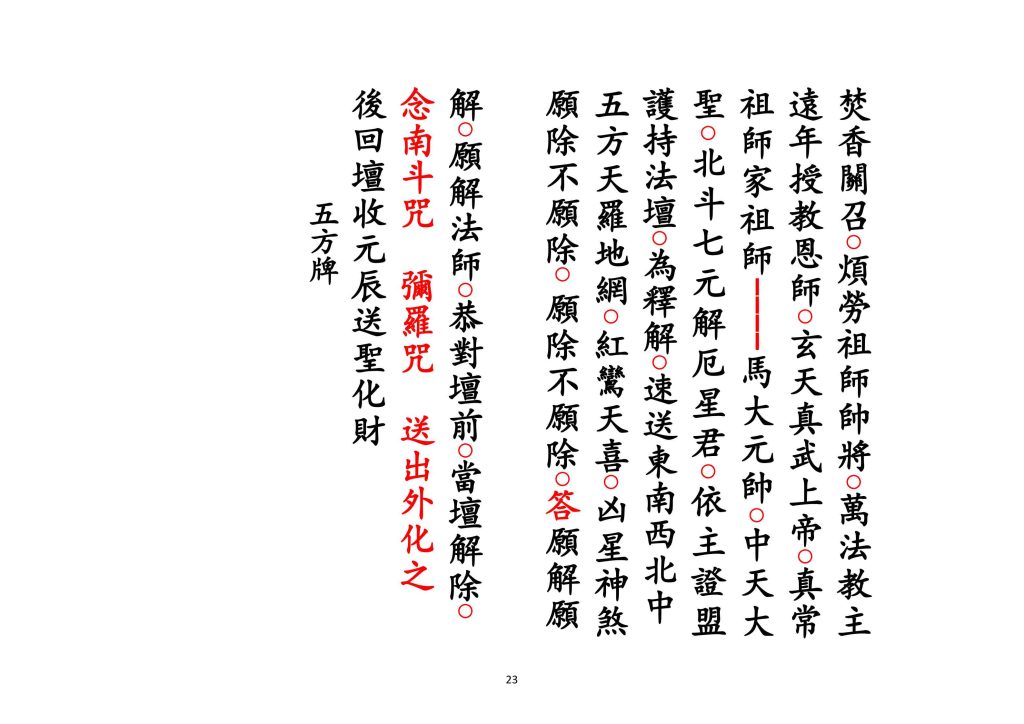 焚香關召○煩勞祖師帥將○萬法教主
遠年授教恩師○玄天真武上帝○真常
祖師家祖師————馬大元帥○中天大
聖○北斗七元解厄星君○依主證盟
護持法壇○為釋解○速送東南西北中
五方天羅地網○紅鸞天喜○凶星神煞
願除不願除○願除不願除○答願解願
解○願解法師○恭對壇前○當壇解除○
念南斗咒 彌羅咒 送出外化之
後回壇收元辰送聖化財
五方牌
23